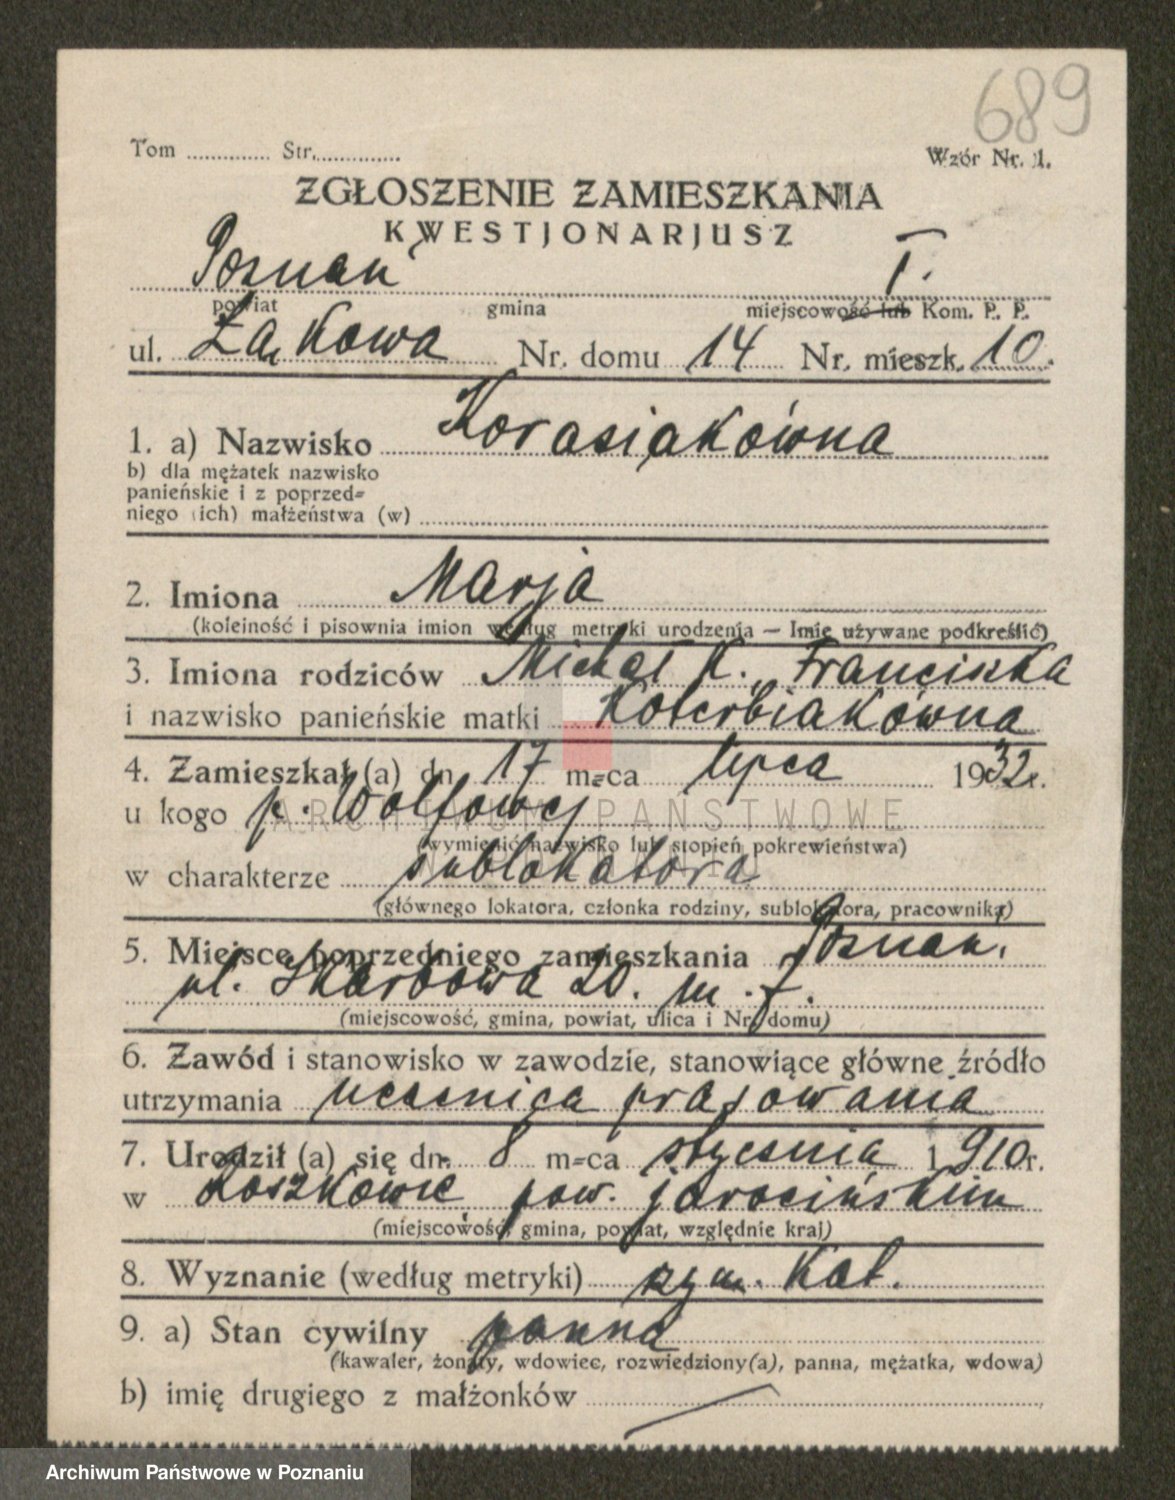 689
Tom ............ Str. ............
Wzór Nr. 1.
ZGŁOSZENIE ZAMIESZKANIA
KWESTJONARJUSZ
Poznań I.
powiat gmina miejscowość lub Kom. P. P.
ul. Łąkowa Nr. domu 14 Nr. mieszk. 10.
1. a) Nazwisko Korasiakówna
b) dla mężatek nazwisko
panieńskie i z poprzed=
niego (ich) małżeństwa (w)
2. Imiona Marja
(kolejność i pisownia imion według metryki urodzenia — Imię używane podkreślić)
3. Imiona rodziców Michał K. Franciszka
i nazwisko panieńskie matki Koterbiakówna
4. Zamieszkał (a) dn. 17 m=ca lipca 1932 r.
u kogo p. Wolfowej
ARCHIWUM PAŃSTWOWE
(wymienić nazwisko lub stopień pokrewieństwa)
w charakterze sublokatora
(głównego lokatora, członka rodziny, sublokatora, pracownika)
5. Miejsce poprzedniego zamieszkania Poznań,
ul. Skarbowa 20. m. 7.
(miejscowość, gmina, powiat, ulica i Nr. domu)
6. Zawód i stanowisko w zawodzie, stanowiące główne źródło
utrzymania uczenica prasowania
7. Urodził (a) się dn. 8 m=ca stycznia 1910 r.
w pow. jarocińskim
(miejscowość, gmina, powiat, względnie kraj)
8. Wyznanie (według metryki) rzym. kat.
9. a) Stan cywilny panna
(kawaler, żonaty, wdowiec, rozwiedziony(a), panna, mężatka, wdowa)
b) imię drugiego z małżonków
Archiwum Państwowe w Poznaniu